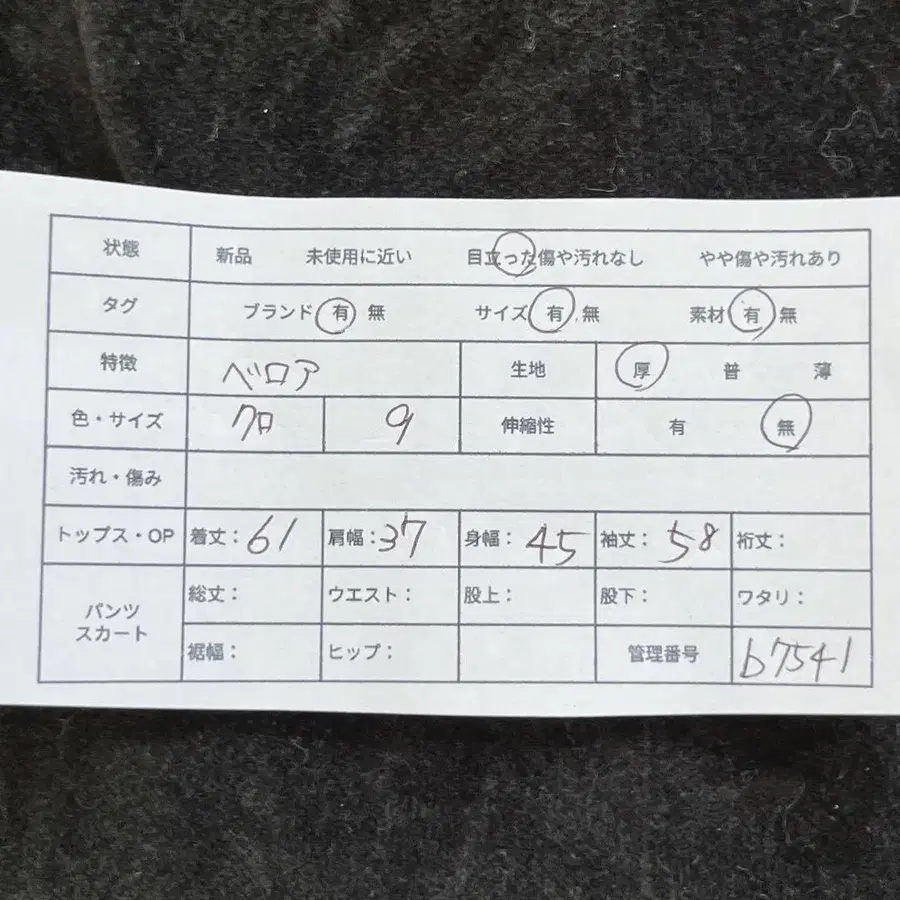 状態 新品 未使用に近い 目立った傷や汚れなし やや傷や汚れあり
タグ ブランド 有 無 サイズ 有 . 無 素材 有 無
特徴 ベロア 生地 厚 普 薄
色・サイズ クロ 9 伸縮性 有 無
汚れ・傷み
トップス・OP 着丈:61 肩幅:37 身幅:45 袖丈:58 裄丈:
パンツ
スカート
総丈: ウエスト: 股上: 股下: ワタリ:
裾幅: ヒップ: 管理番号 b7541